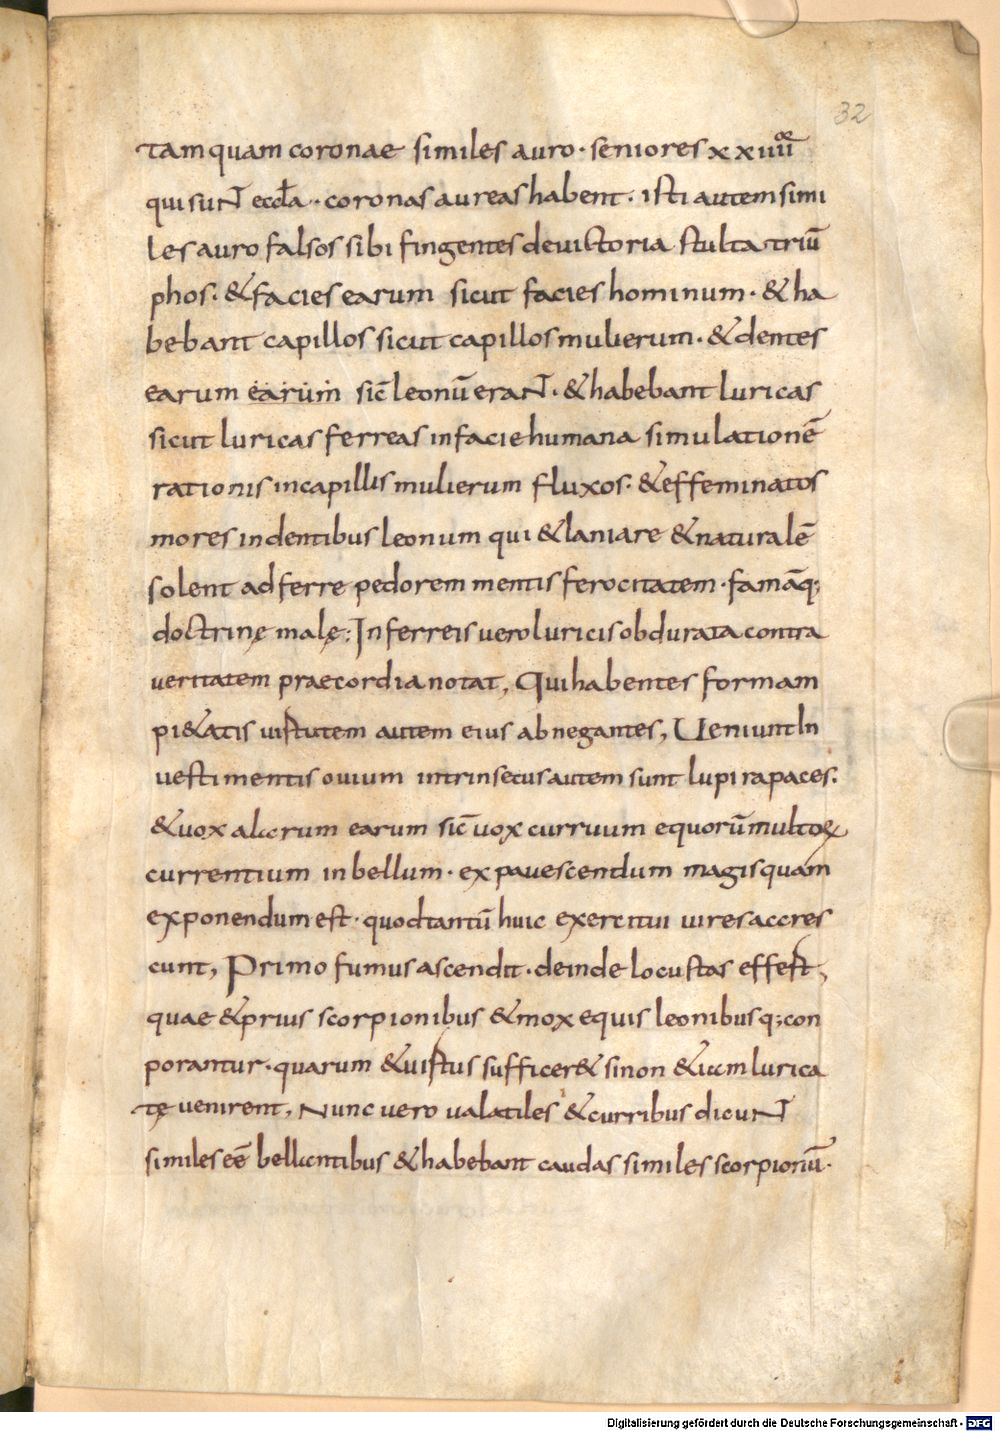 32
tamquam coronae similes auro · seniores xxiiii or
qui sunt eccła · coronas aureas habent · isti autem simi
les auro falsos sibi fingentes devictoria stulta triū
phos · & facies earum sicut facies hominum · & ha
bebant capillos sicut capillos mulierum · & dentes
earum earum sic̄ leonū erant · & habebant luricas
sicut luricas ferreas in facie humana simulationē
rationis in capillis mulierum fluxos · & effeminatos
mores in dentibus leonum qui & laniare & naturalē
solent adferre pedorem mentis ferocitatem · famāq;
doctrinę malę: In ferreis vero luricis obdurata contra
veritatem praecordia notat, Qui habentes formam
pi&atis uirtutem autem eius abnegantes, Ueniunt In
vestimentis ovium intrinsecus autem sunt lupi rapaces.
& vox alarum earum sic̄ vox curruum equorū multoꝝ
currentium in bellum · expavescendum magis quam
exponendum est · quod tantū huic exercitui vires accres
cunt, Primo fumus ascendit · deinde locustas effert,
quae & prius scorpionibus & mox equis leonibusq; con
porantur · quarum & virtus sufficer& si non & cum lurica
tę venirent, Nunc vero valatiles & curribus dicunt
similes eē bellantibus & habebant caudas similes scorpionū·
Digitalisierung gefördert durch die Deutsche Forschungsgemeinschaft - DFG